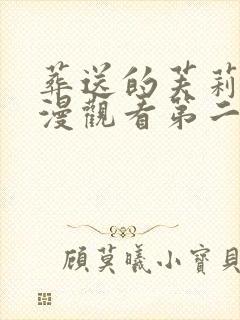 葬送的芙莉
漫觀看第二
顧莫曦小寶貝